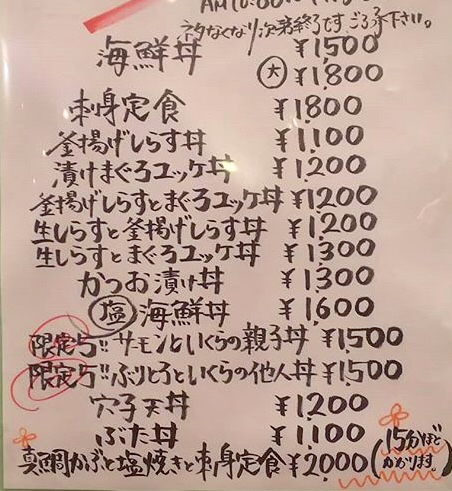 ネタなくなり次第終了です ご了承下さい。
海鮮丼 ¥1,500
大 ¥1,800
刺身定食 ¥1800
釜揚げしらす丼 ¥1,100
漬けまぐろユッケ丼 ¥1,200
釜揚げしらすとまぐろユッケ丼 ¥1,200
生しらすと釜揚げしらす丼 ¥1,200
生しらすとまぐろユッケ丼 ¥1,300
かつお漬け丼 ¥1,300
塩 海鮮丼 ¥1,600
限定5!! サーモンといくらの親子丼 ¥1,500
限定5!! ぶりとろといくらの他人丼 ¥1,500
穴子天丼 ¥1,200
ぶた丼 ¥1,100
真鯛かぶと塩焼きと刺身定食 ¥2,000 (15分ほど
かかります。)